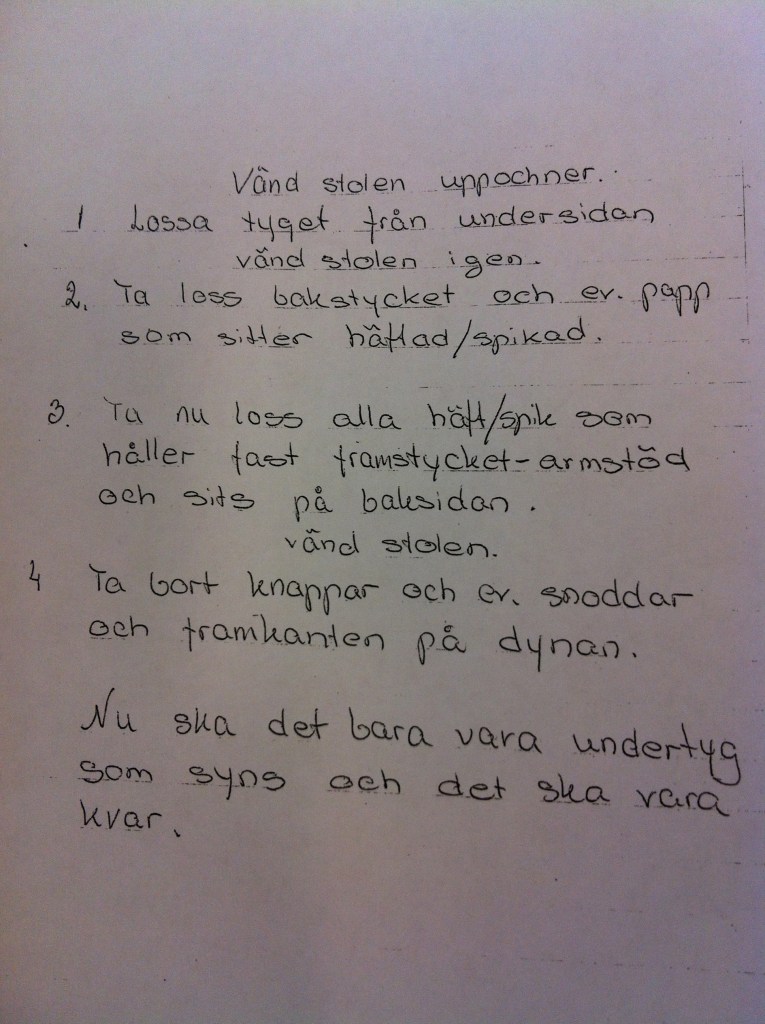 Vänd stolen uppochner.
1 Lossa tyget från undersidan
vänd stolen igen.
2. Ta loss bakstycket och ev. papp
som sitter häftad/spikad.
3. Ta nu loss alla häft/spik som
håller fast framstycket-armstöd
och sits på baksidan.
vänd stolen.
4 Ta bort knappar och ev. snoddar
och framkanten på dynan.
Nu ska det bara vara undertyg
som syns och det ska vara
kvar.